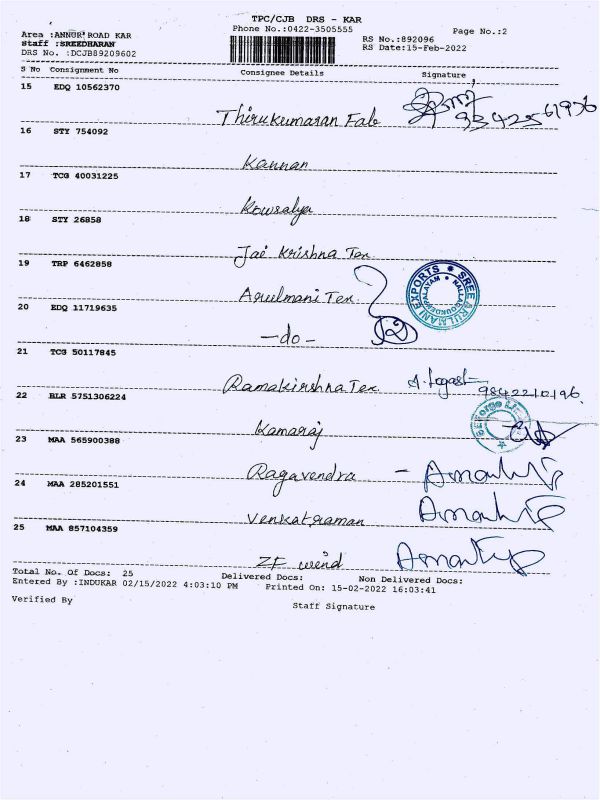 TPC/CJB DRS - KAR
Area :ANNUR ROAD KAR Phone No.:0422-3505555 Page No.:2
Staff :SREEDHARAN RS No.:892096
DRS No. :DCJB89209602 RS Date:15-Feb-2022
S No Consignment No Consignee Details Signature
15 EDQ 10562370
Thirukumaran Fab
16 STY 754092
Kannan
17 TCG 40031225
Kowsalya
18 STY 26858
Jai Krishna Tex
19 TRP 6462858
Arulmani Tex
20 EDQ 11719635
-do-
21 TCG 50117845
Ramakirshna Tex 9842210196
22 BLR 5751306224
Kamaraj
23 MAA 565900388
Ragavendra -
24 MAA 285201551
Venkatraman
25 MAA 857104359
ZF wind
Total No. Of Docs: 25 Delivered Docs: Non Delivered Docs:
Entered By :INDUKAR 02/15/2022 4:03:10 PM Printed On: 15-02-2022 16:03:41
Verified By Staff Signature